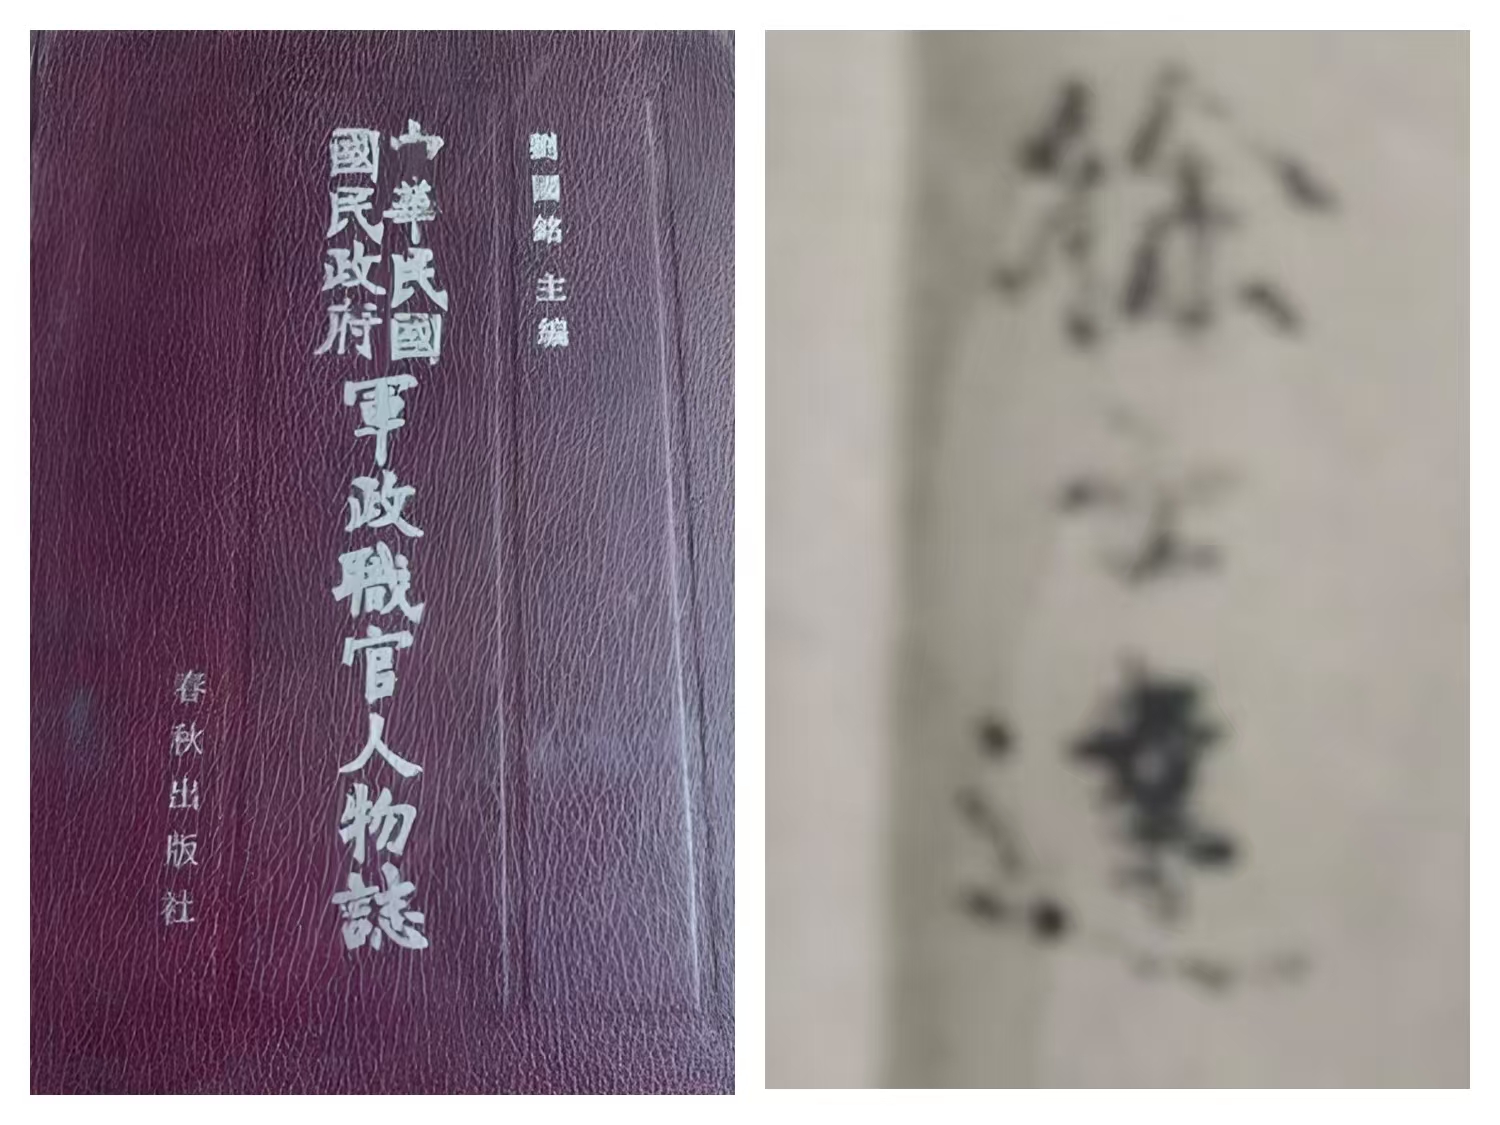 劉國銘 主編
中華民國
國民政府
軍政職官人物誌
春秋出版社
徐